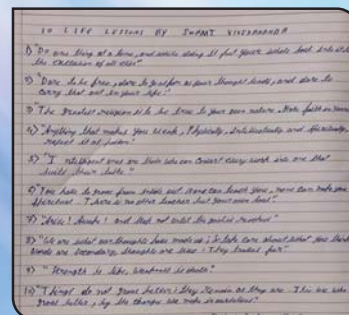 10 LIFE LESSONS BY SWAMI VIVEKANANDA
1) "Do one thing at a time, and while doing it put your whole soul into it to
the exclusion of all else."
2) "Dare to be free, dare to go as far as your thought leads, and dare to
carry that out in your life."
3) "The greatest religion is to be true to your own nature. Have faith in
4) "Anything that makes you weak, Physically, Intellectually and Spiritually,
reject it as poison."
5) "I are those who can convert every work into one that
their taste."
6) "You have to grow from inside out. None can teach you, none can make you
spiritual. There is no other teacher but your own soul."
7) "Arise! Awake! and stop not until the goal is reached"
8) "We are what our thoughts have made us; so take care about what you think
Words are secondary, thoughts are live; they travel far."
9) "Strength is life, weakness is death."
10) "Things do not grow better; they remain as they are. It is we who
grow better, by the changes we make in ourselves."